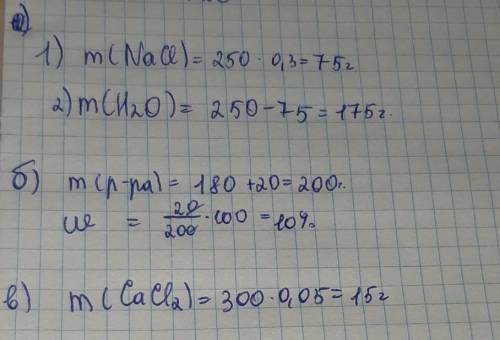 а)
1) m(NaCl) = 250 · 0,3 = 75г
2) m(H₂O) = 250 - 75 = 175г.
б) m(р-ра) = 180 + 20 = 200г.
w = 20/200 · 100 = 10%
в) m(CaCl₂) = 300 · 0,05 = 15г